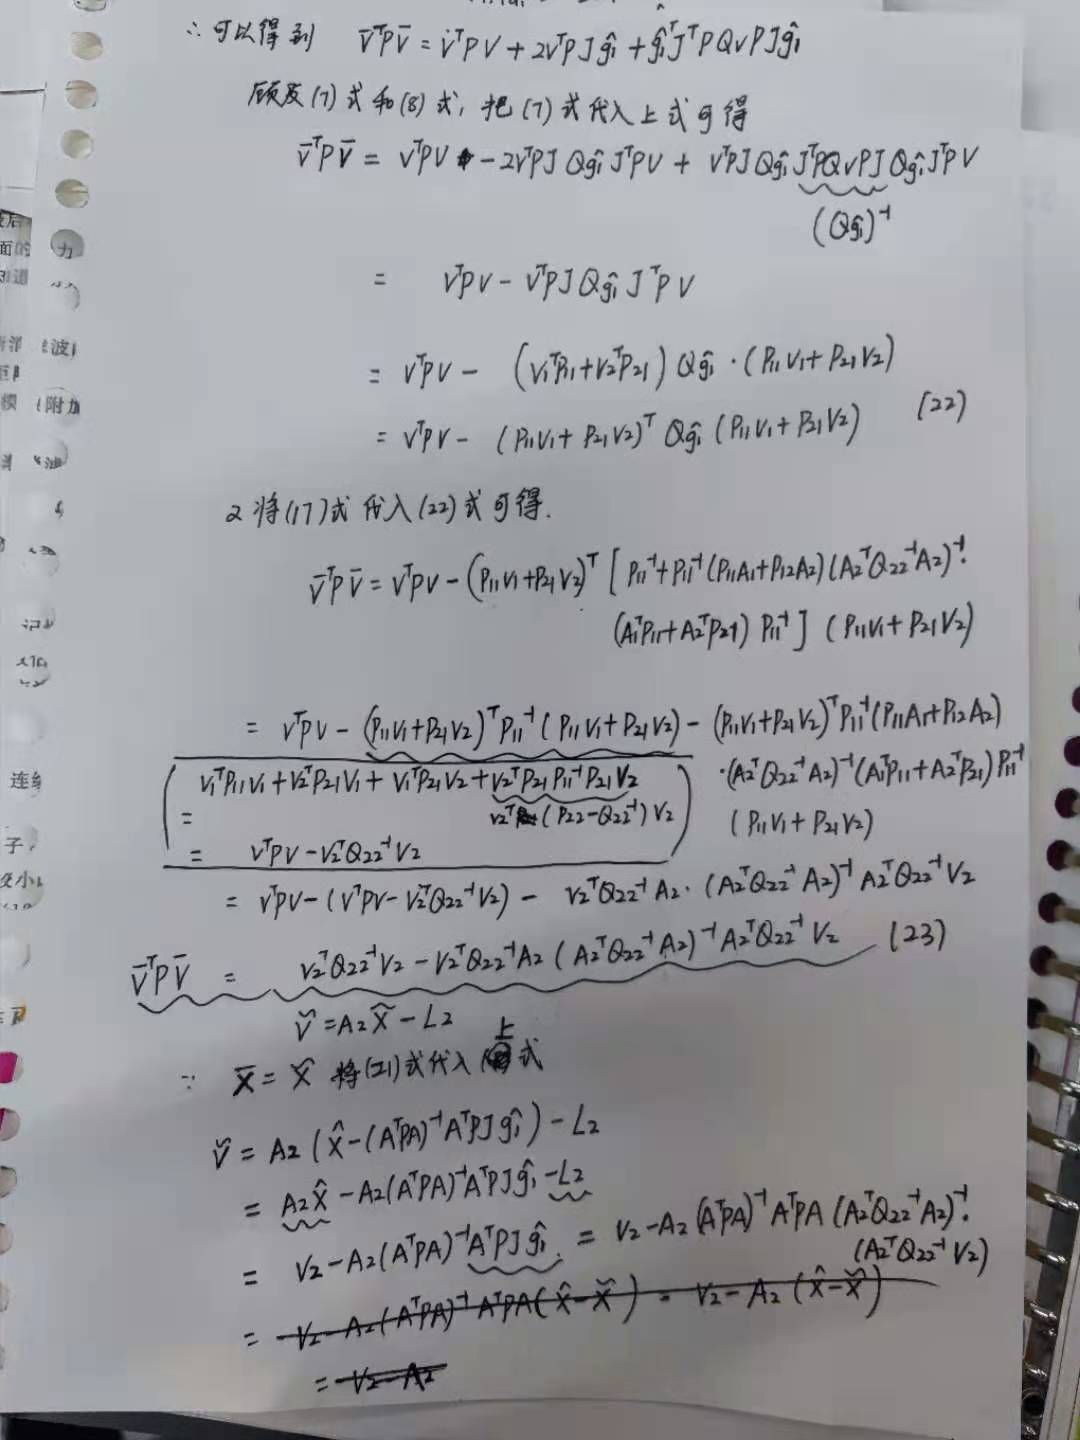 ∴可以得到 V̄ᵀPV̄ = VᵀPV + 2VᵀPJĝ₁ + ĝ₁ᵀJᵀPQvPJĝ₁
顾及(7)式和(8)式,把(7)式代入上式可得
V̄ᵀPV̄ = VᵀPV - 2VᵀPJQĝ₁JᵀPV + VᵀPJQĝ₁JᵀPQvPJQĝ₁JᵀPV
(Qĝ₁)⁻¹
= VᵀPV - VᵀPJQĝ₁JᵀPV
= VᵀPV - (V₁ᵀP₁₁+V₂ᵀP₂₁)Qĝ₁·(P₁₁V₁+P₂₁V₂)
= VᵀPV - (P₁₁V₁+P₂₁V₂)ᵀQĝ₁(P₁₁V₁+P₂₁V₂) (22)
2 将(17)式代入(22)式可得.
V̄ᵀPV̄ = VᵀPV - (P₁₁V₁+P₂₁V₂)ᵀ[P₁₁⁻¹+P₁₁⁻¹(P₁₁A₁+P₁₂A₂)(A₂ᵀQ₂₂⁻¹A₂)⁻¹·
(A₁ᵀP₁₁+A₂ᵀP₂₁)P₁₁⁻¹](P₁₁V₁+P₂₁V₂)
= VᵀPV - (P₁₁V₁+P₂₁V₂)ᵀP₁₁⁻¹(P₁₁V₁+P₂₁V₂) - (P₁₁V₁+P₂₁V₂)ᵀP₁₁⁻¹(P₁₁A₁+P₁₂A₂)
·(A₂ᵀQ₂₂⁻¹A₂)⁻¹(A₁ᵀP₁₁+A₂ᵀP₂₁)P₁₁⁻¹
(P₁₁V₁+P₂₁V₂)
= V₁ᵀP₁₁V₁+V₂ᵀP₂₁V₁+V₁ᵀP₂₁V₂+V₂ᵀP₂₁P₁₁⁻¹P₂₁V₂
V₂ᵀ(P₂₂-Q₂₂⁻¹)V₂
= VᵀPV-V₂ᵀQ₂₂⁻¹V₂
= VᵀPV-(VᵀPV-V₂ᵀQ₂₂⁻¹V₂) - V₂ᵀQ₂₂⁻¹A₂·(A₂ᵀQ₂₂⁻¹A₂)⁻¹A₂ᵀQ₂₂⁻¹V₂
V̄ᵀPV̄ = V₂ᵀQ₂₂⁻¹V₂-V₂ᵀQ₂₂⁻¹A₂(A₂ᵀQ₂₂⁻¹A₂)⁻¹A₂ᵀQ₂₂⁻¹V₂ (23)
Ṽ=A₂X̃-L₂
∵ X̄=X̌ 将(21)式代入上式
V̌ = A₂(X̂-(AᵀPA)⁻¹AᵀPJĝ₁)-L₂
= A₂X̂-A₂(AᵀPA)⁻¹AᵀPJĝ₁-L₂
= V₂-A₂(AᵀPA)⁻¹AᵀPJĝ₁ = V₂-A₂(AᵀPA)⁻¹AᵀPA(A₂ᵀQ₂₂⁻¹A₂)⁻¹·
(A₂ᵀQ₂₂⁻¹V₂)
= V₂-A₂(AᵀPA)⁻¹AᵀPA(X̂-X̌) = V₂-A₂(X̂-X̌)
= V₂-A₂
面的
力
道
波
附加
连
子